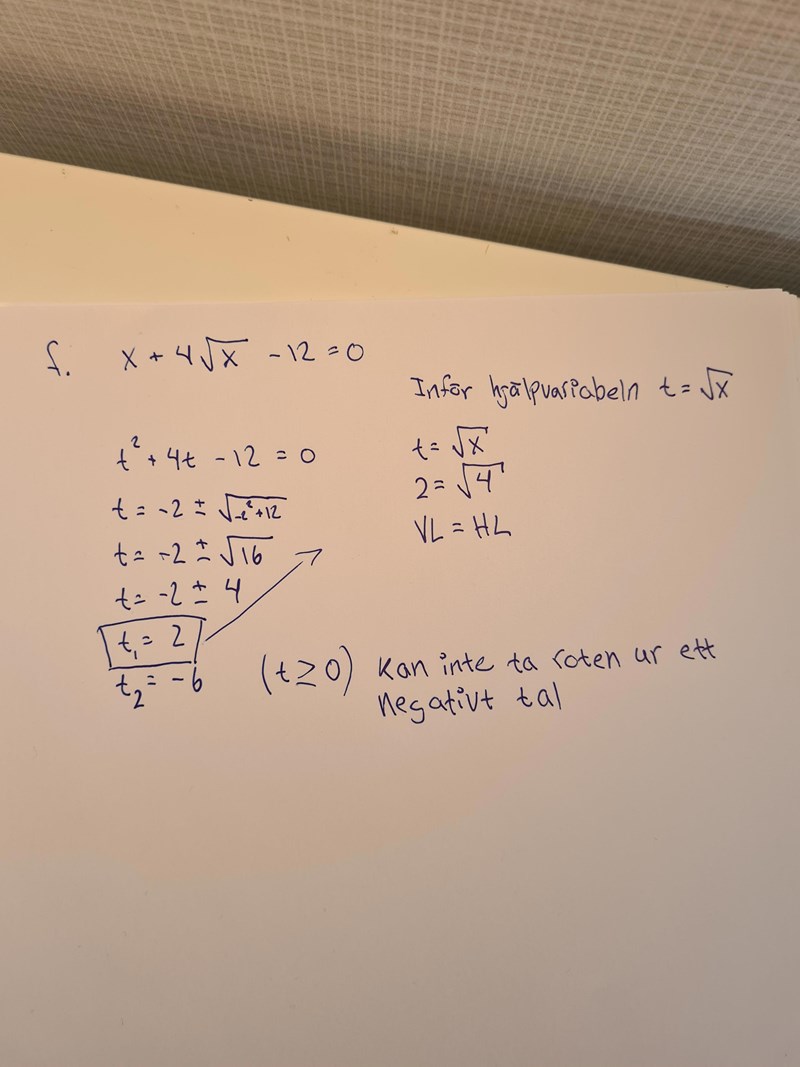 f. x + 4√x - 12 = 0
Inför hjälpvariabeln t = √x
t² + 4t - 12 = 0
t = -2 ± √-2²+12
t = -2 ± √16
t = -2 ± 4
t₁ = 2
t₂ = -6
t = √x
2 = √4
VL = HL
(t ≥ 0) Kan inte ta roten ur ett
negativt tal